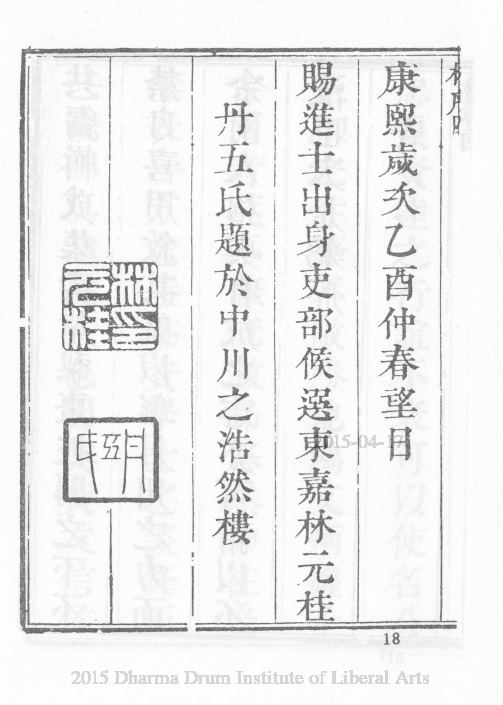 林序四
康熙歲次乙酉仲春望日
賜進士出身吏部候選東嘉林元桂
丹五氏題於中川之浩然樓
林元桂印
丹五氏
2015-04-17
18
2015 Dharma Drum Institute of Liberal Arts